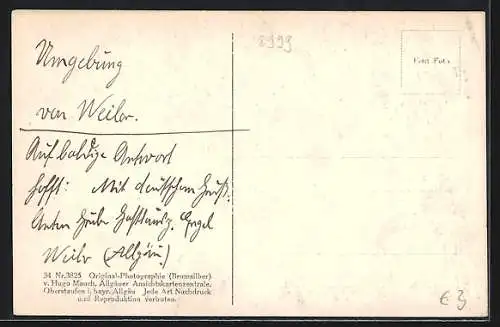 Umgebung
von Weiler.
Auf baldige Antwort
hofft: Mit deutschem Gruß.
Anton Gasthaus z. Engel
Weiler (Allgäu)
34 Nr.3825 Original-Photographie (Bromsilber)
v. Hugo Mauch, Allgäuer Ansichtskartenzentrale,
Oberstaufen i. bayr. Allgäu Jede Art Nachdruck
und Reproduktion verboten.
8999
Foto
€ 3